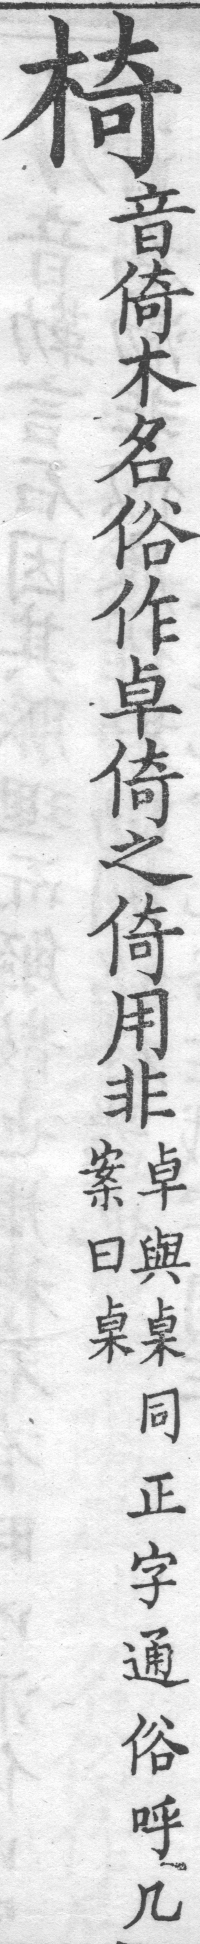 椅
音倚木名俗作卓倚之倚用非
卓與桌同正字通俗呼几
案曰桌